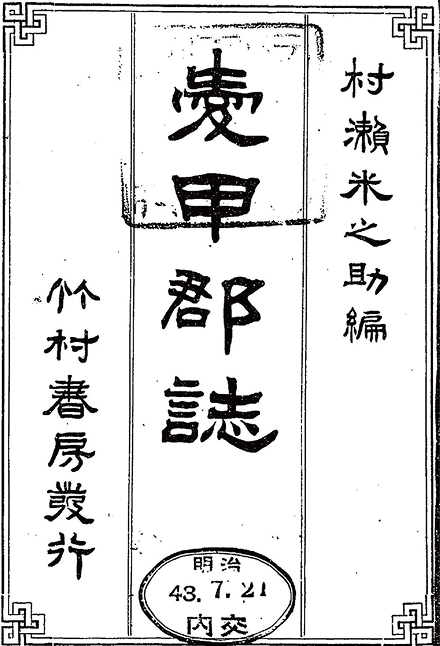 村瀨米之助編
愛甲郡誌
竹村書房發行
明治
43.7.21
内交